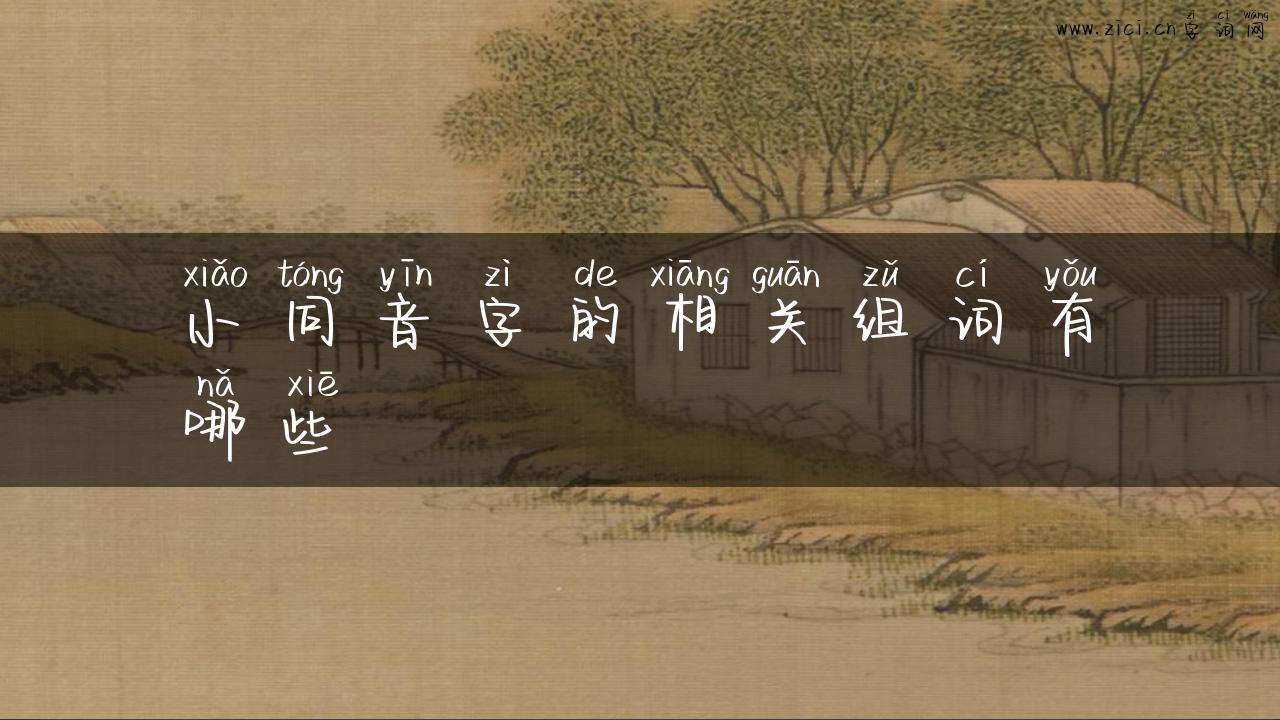 zì cí wǎng
www.zici.cn字词网
xiǎo tóng yīn zì de xiāng guān zǔ cí yǒu
小同音字的相关组词有
nǎ xiē
哪些